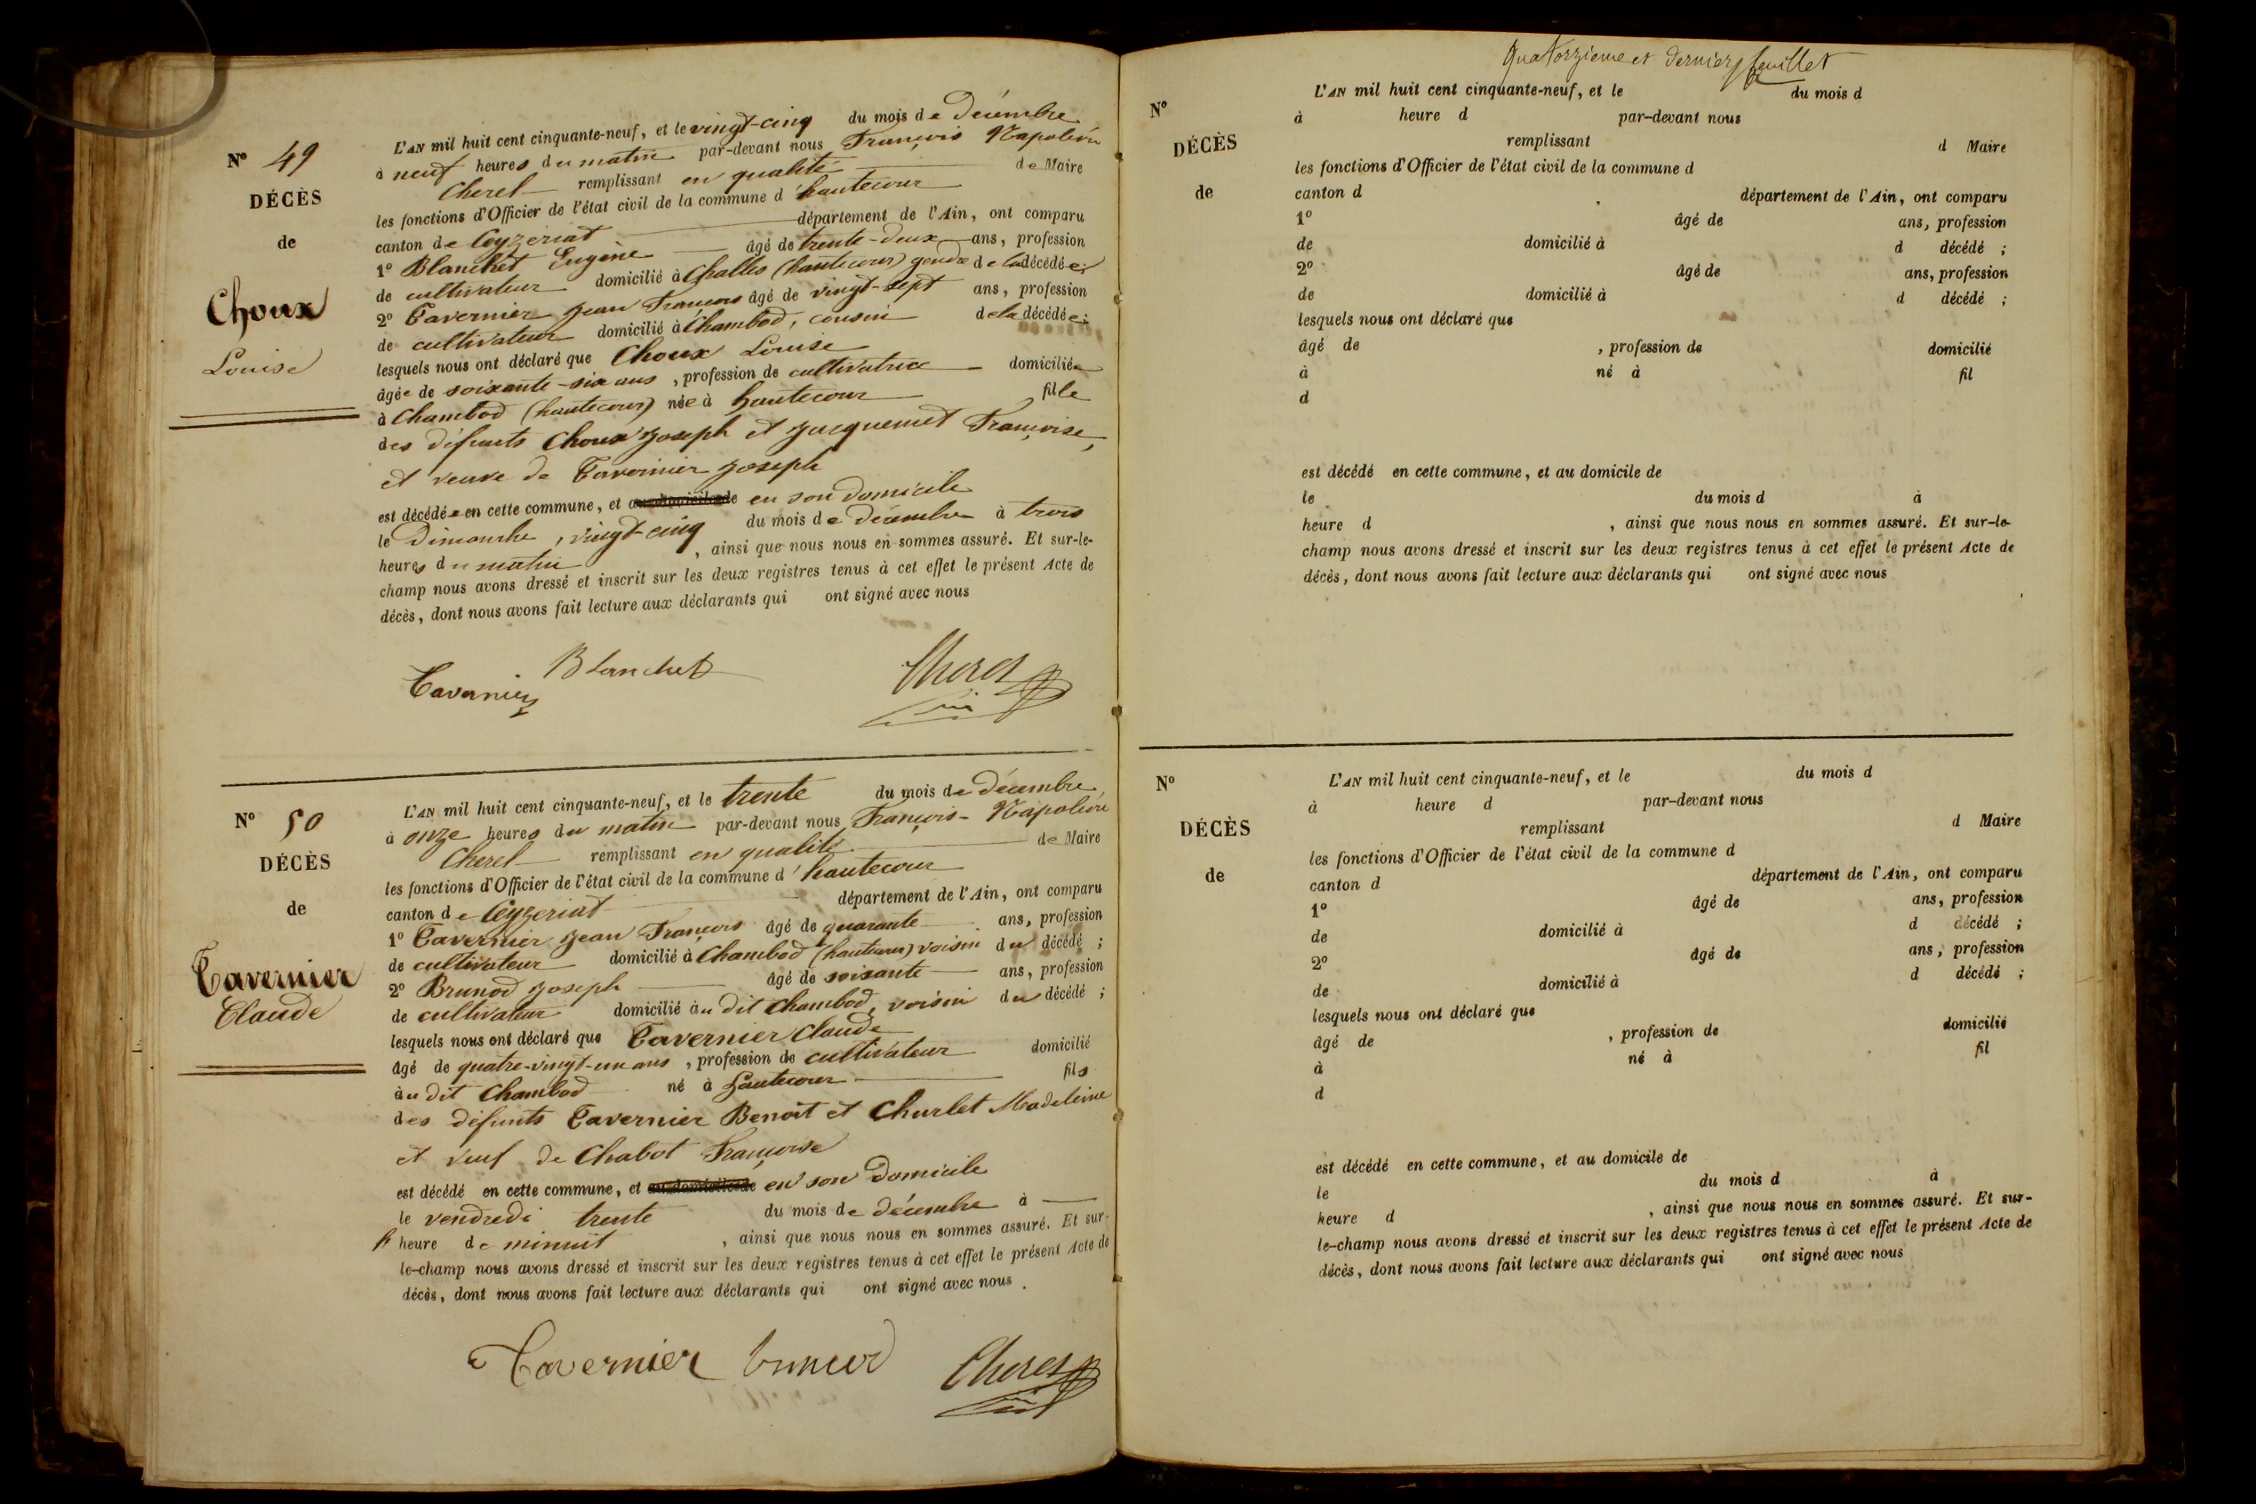 N° 49
DÉCÈS
de
Choux
Louise
L'AN mil huit cent cinquante-neuf, et le vingt-cinq du mois de Décembre
à neuf heures du matin par-devant nous François Napoléon
Cherel remplissant en qualité de Maire
les fonctions d'Officier de l'état civil de la commune d'hautecour
canton de Ceyzeriat département de l'Ain, ont comparu
1° Blanchet Eugène âgé de trente-deux ans, profession
de cultivateur domicilié à Challes (hautecour) gendre de la décédée;
2° Tavernier Jean François âgé de vingt-sept ans, profession
de cultivateur domicilié à Chambod, cousin de la décédée;
lesquels nous ont déclaré que Choux Louise
âgée de soixante-six ans, profession de cultivatrice domiciliée
à Chambod (hautecour) née à hautecour fille
des défunts Choux Joseph et Jacquemet Françoise,
et veuve de Tavernier Joseph
est décédée en cette commune, et au domicile de en son domicile
le Dimanche, vingt-cinq du mois de décembre à trois
heures du matin, ainsi que nous nous en sommes assuré. Et sur-le-
champ nous avons dressé et inscrit sur les deux registres tenus à cet effet le présent Acte de
décès, dont nous avons fait lecture aux déclarants qui ont signé avec nous
Tavernier Blanchet Cherel
N° 50
DÉCÈS
de
Tavernier
Claude
L'AN mil huit cent cinquante-neuf, et le trente du mois de décembre,
à onze heures du matin par-devant nous François-Napoléon
Cherel remplissant en qualité de Maire
les fonctions d'Officier de l'état civil de la commune d'hautecour
canton de Ceyzeriat département de l'Ain, ont comparu
1° Tavernier Jean François âgé de quarante ans, profession
de cultivateur domicilié à Chambod (hautecour) voisin du décédé;
2° Brunod Joseph âgé de soixante ans, profession
de cultivateur domicilié au dit Chambod, voisin du décédé;
lesquels nous ont déclaré que Tavernier Claude
âgé de quatre-vingt-un ans, profession de cultivateur domicilié
au dit Chambod né à hautecour fils
des défunts Tavernier Benoît et Churlet Madeleine
et veuf de Chabot Françoise
est décédé en cette commune, et au domicile de en son domicile
le vendredi trente du mois de décembre à
heure de minuit, ainsi que nous nous en sommes assuré. Et sur-
le-champ nous avons dressé et inscrit sur les deux registres tenus à cet effet le présent Acte de
décès, dont nous avons fait lecture aux déclarants qui ont signé avec nous.
Tavernier brunod Cherel
Quatorzieme et dernier feuillet
N°
DÉCÈS
de
L'AN mil huit cent cinquante-neuf, et le du mois d
à heure d par-devant nous
remplissant d Maire
les fonctions d'Officier de l'état civil de la commune d
canton d département de l'Ain, ont comparu
1° âgé de ans, profession
de domicilié à d décédé ;
2° âgé de ans, profession
de domicilié à d décédé ;
lesquels nous ont déclaré que
âgé de , profession de domicilié
à né à fil
d
est décédé en cette commune, et au domicile de
le du mois d à
heure d , ainsi que nous nous en sommes assuré. Et sur-le-
champ nous avons dressé et inscrit sur les deux registres tenus à cet effet le présent Acte de
décès, dont nous avons fait lecture aux déclarants qui ont signé avec nous
N°
DÉCÈS
de
L'AN mil huit cent cinquante-neuf, et le du mois d
à heure d par-devant nous
remplissant d Maire
les fonctions d'Officier de l'état civil de la commune d
canton d département de l'Ain, ont comparu
1° âgé de ans, profession
de domicilié à d décédé ;
2° âgé de ans, profession
de domicilié à d décédé ;
lesquels nous ont déclaré que
âgé de , profession de domicilié
à né à fil
d
est décédé en cette commune, et au domicile de
le du mois d à
heure d , ainsi que nous nous en sommes assuré. Et sur-
le-champ nous avons dressé et inscrit sur les deux registres tenus à cet effet le présent Acte de
décès, dont nous avons fait lecture aux déclarants qui ont signé avec nous